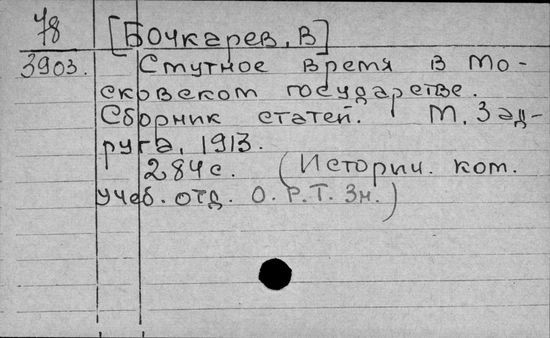 78
3903.
[Бочкарев, В]
Смутное время в Мо-
сковском государстве.
Сборник статей. М. Зад-
руга, 1913.
284 с. (Истории. ком.
учеб. отд. О. Р. Т. Зн.)